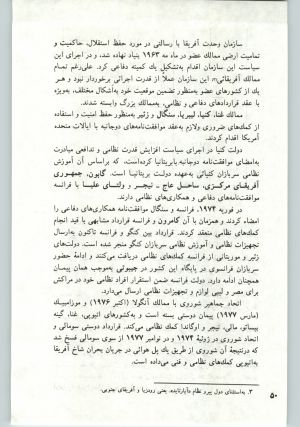 سازمان وحدت آفریقا با رسالتی در مورد حفظ استقلال، حاکمیت و
تمامیت ارضی ممالک عضو در ماه مه ۱۹۶۳ بنیاد نهاده شد، و در اجرای این
سیاست این سازمان اقدام به‌تشکیل یک کمیته دفاعی کرد. علی‌رغم تمام
ممالک آفریقائی۳، این سازمان عملاً از قدرت اجرائی برخوردار نبود و هر
یک از کشورهای عضو به‌منظور تضمین موقعیت خود به‌اشکال مختلف، به‌ویژه
با عقد قراردادهای دفاعی و نظامی، به‌ممالک بزرگ وابسته شدند.
ممالک غنا، کنیا، لیبریا، سنگال و زئیر به‌منظور حفظ امنیت و استفاده
از کمک‌های ضروری ولازم به‌عقد موافقت‌نامه‌های دوجانبه با ایالات متحده
آمریکا اقدام کردند.
دولت کنیا در اجرای سیاست افزایش قدرت نظامی و تدافعی مبادرت
به‌امضای موافقت‌نامه دوجانبه بابریتانیا کرده‌است، که براساس آن آموزش
نظامی سربازان کنیائی به‌عهده دولت بریتانیا است. گابون، جمهوری
آفریقای مرکزی، ساحل عاج، نیجر و ولتای علیا با فرانسه
موافقت‌نامه‌های دفاعی و همکاری‌های نظامی دارند.
در فوریه ۱۹۷۴، فرانسه و سنگال موافقت‌نامه همکاری‌های دفاعی را
امضاء کردند و همزمان با آن کامرون و فرانسه قرارداد مشابهی با قید انجام
کمک‌های نظامی عقد کردند. قرارداد بین کنگو و فرانسه تاکنون به‌ارسال
تجهیزات نظامی و آموزش نظامی سربازان کنگو منجر شده است. دولت‌های
زئیر و موریتانی از فرانسه کمک‌های نظامی دریافت می‌کنند و ادامه حضور
سربازان فرانسوی در پایگاه این کشور در جیبوتی به‌موجب همان پیمان
ادامه دارد. دولت فرانسه ضمن استقرار افراد نظامی خود در مراکش
برای مصر و لیبی لوازم و تجهیزات نظامی ارسال می‌دارد.
اتحاد جماهیر شوروی با ممالک آنگولا (اکتبر ۱۹۷۶) و موزامبیک
(مارس ۱۹۷۷) پیمان دوستی بسته است و به‌کشورهای اتیوپی، غنا، گینه
بیسائو، مالی، نیجر و اوگاندا کمک نظامی می‌کند. قرارداد دوستی سومالی و
اتحاد شوروی در ژوئیهٔ ۱۹۷۴ و در نوامبر ۱۹۷۷ از سوی سومالی فسخ شد
که درنتیجه آن شوروی از طریق پل هوائی در جریان بحران شاخ آفریقا
به‌اتیوپی کمک‌های نظامی و فنی می‌کند.
۳. به‌استثنای دول پیرو نظام «آپارتاید»، یعنی رودزیا و آفریقای جنوبی.
۵۰